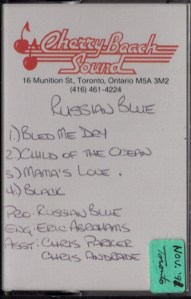 Cherry Beach
Sound
16 Munition St., Toronto, Ontario M5A 3M2
(416) 461-4224
RUSSIAN BLUE
1) BLEED ME DRY
2) CHILD OF THE OCEAN
3) MAMA'S LOVE.
4) BLACK
PRO: RUSSIAN BLUE
ENG: ERIC ABRAHAMS
ASST: CHRIS PARKER
CHRIS ANDRADE
NOV.